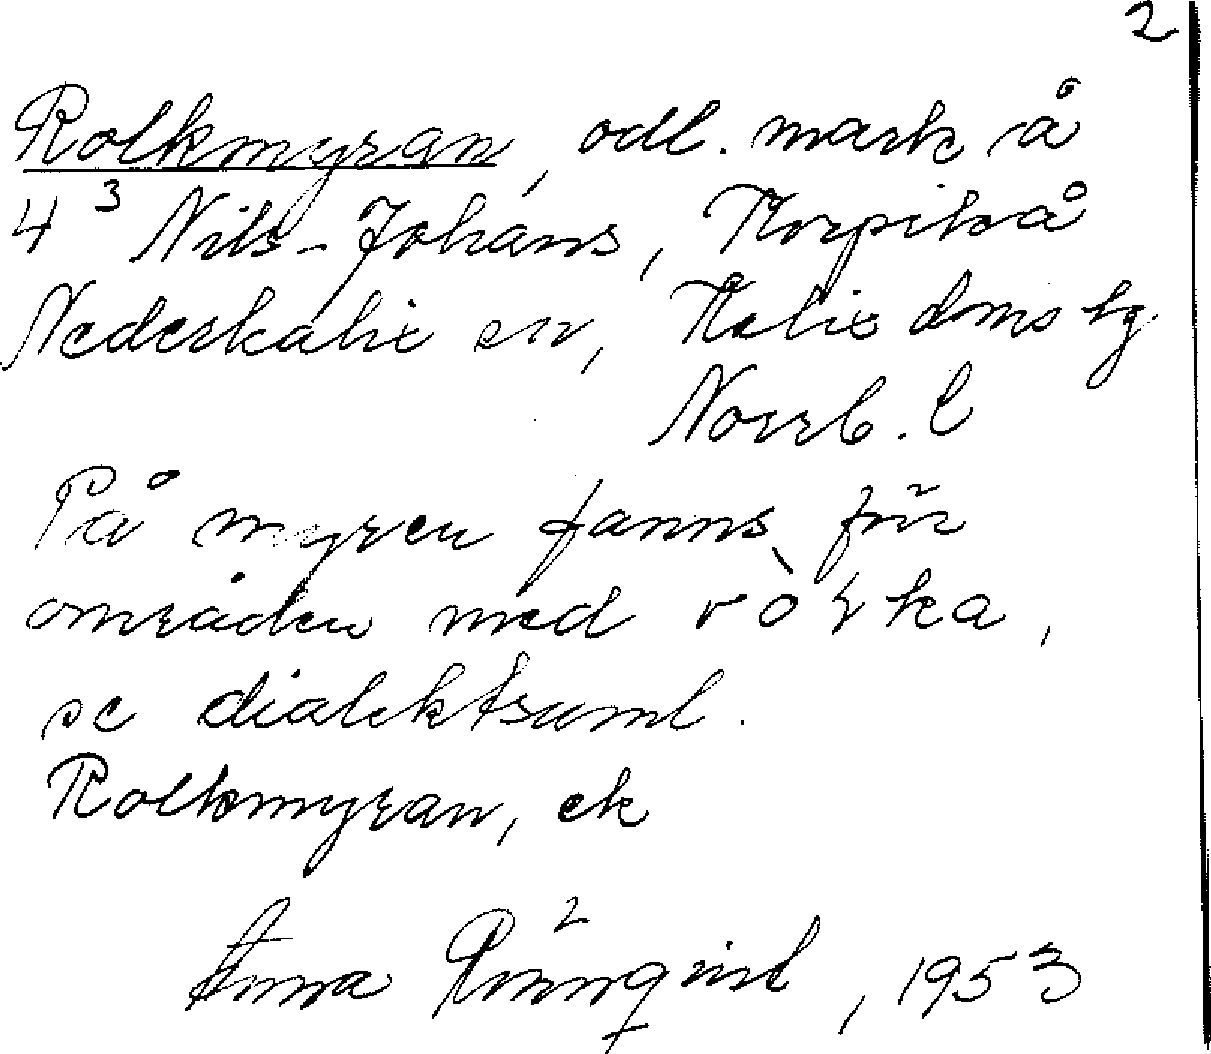 2
Rolkmyran, odl. mark å
4³ Nils-Johans, Korpikå
Nederkalix sn, Kalix dms tg
Norrb. l
På myren fanns för
områden med
se dialektsaml.
Rolkmyran, ek
Anna Rönnqvist, 1953